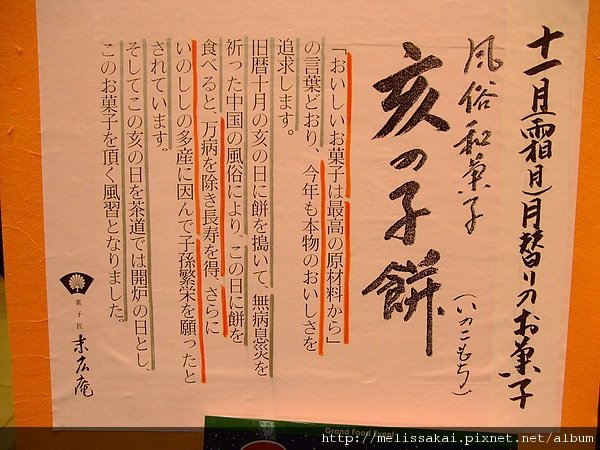 十一月(霜月)月替りのお菓子
風俗和菓子
亥の子餅
(いのこもち)
「おいしいお菓子は最高の原材料から」
の言葉どおり、今年も本物のおいしさを
追求します。
旧暦十月の亥の日に餅を搗いて、無病息災を
祈った中国の風俗により、この日に餅を
食べると、万病を除き長寿を得、さらに
いのししの多産に因んで子孫繁栄を願ったと
されています。
そしてこの亥の日を茶道では開炉の日とし、
このお菓子を頂く風習となりました。
菓子匠
末広庵
Grand Food Event
http://melissakai.pixnet.net/album